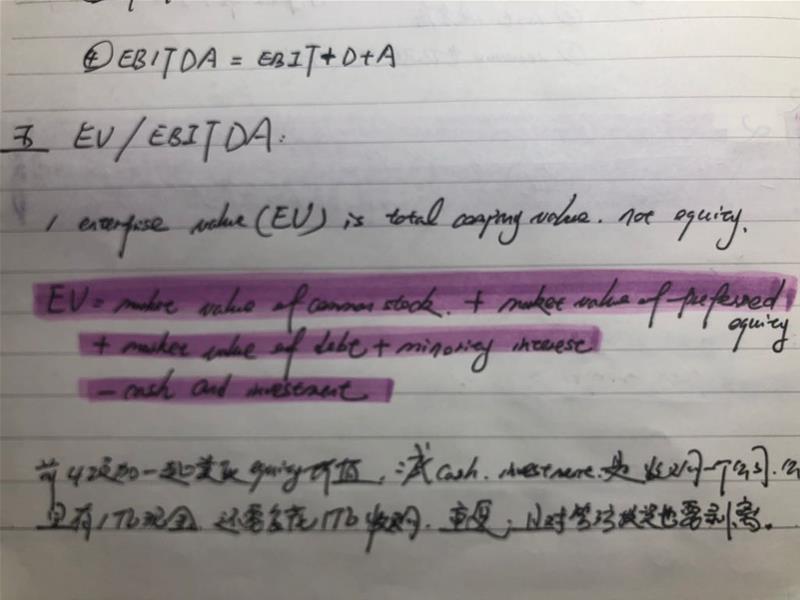 ④ EBITDA = EBIT + D + A
五 EV / EBITDA:
1 enterprise value (EV) is total company value. not equity.
EV = market value of common stock. + market value of preferred
equity
+ market value of debt + minority interest
- cash and investment
前4项加一起 equity 价值, 减 cash. investment. 是 收购一个公司.
里有1个b现金. 还需多花1个b收购. 重复; 投资也需剥离。